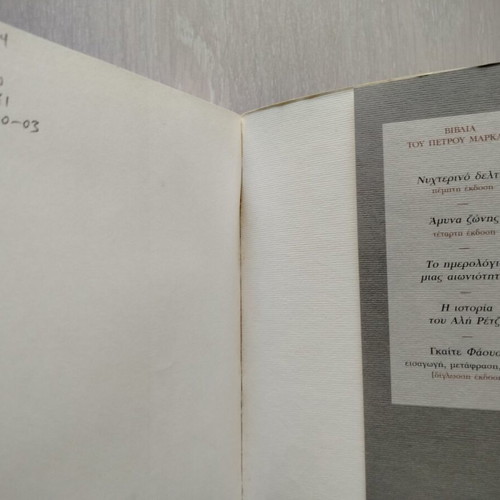 4
0
31
0-03
ΒΙΒΛΙΑ
ΤΟΥ ΠΕΤΡΟΥ ΜΑΡΚΑ
Νυχτερινό δελτ
πέμπτη έκδοση
—
Άμυνα ζώνης
τέταρτη έκδοση
—
Το ημερολόγι
μιας αιωνιότητ
—
Η ιστορία
του Αλή Ρέτζ
—
Γκαίτε Φάουσ
εισαγωγή, μετάφραση,
[δίγλωσση έκδοσ